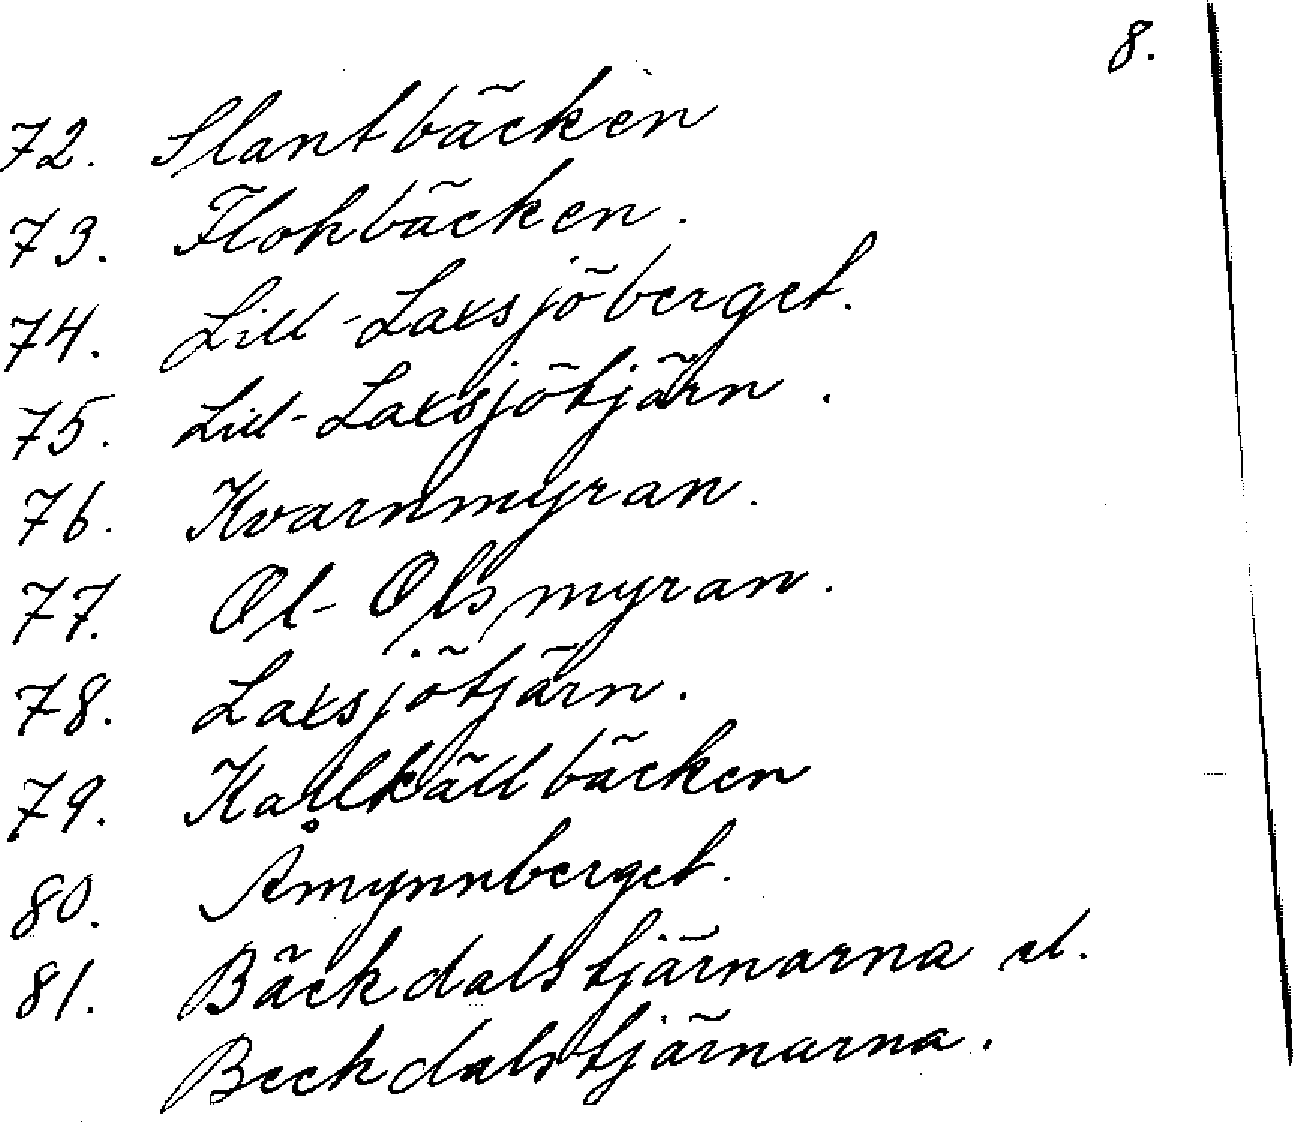 8.
72. Slantbäcken
73. Flohbäcken.
74. Lill-Laxsjöberget.
75. Lill-Laxsjötjärn.
76. Kvarnmyran.
77. Ol-Olsmyran.
78. Laxsjötjärn.
79. Kallkällbäcken
80. Åmynnberget.
81. Bäckdalstjärnarna el.
Beckdalstjärnarna.